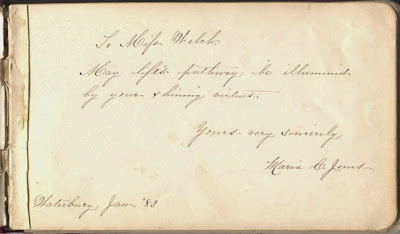 To Miss Welch.
May life's pathway be illumined
by your shining virtues.
Yours very sincerely
Maria C. Jones
Waterbury, Jan. '83